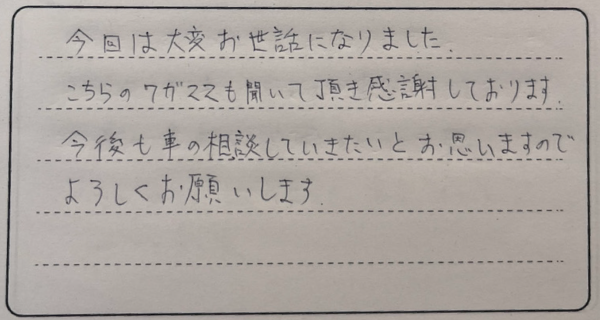 今回は大変お世話になりました.
こちらのワガママも聞いて頂き感謝しております.
今後も車の相談していきたいとお思いますので
よろしくお願いします.